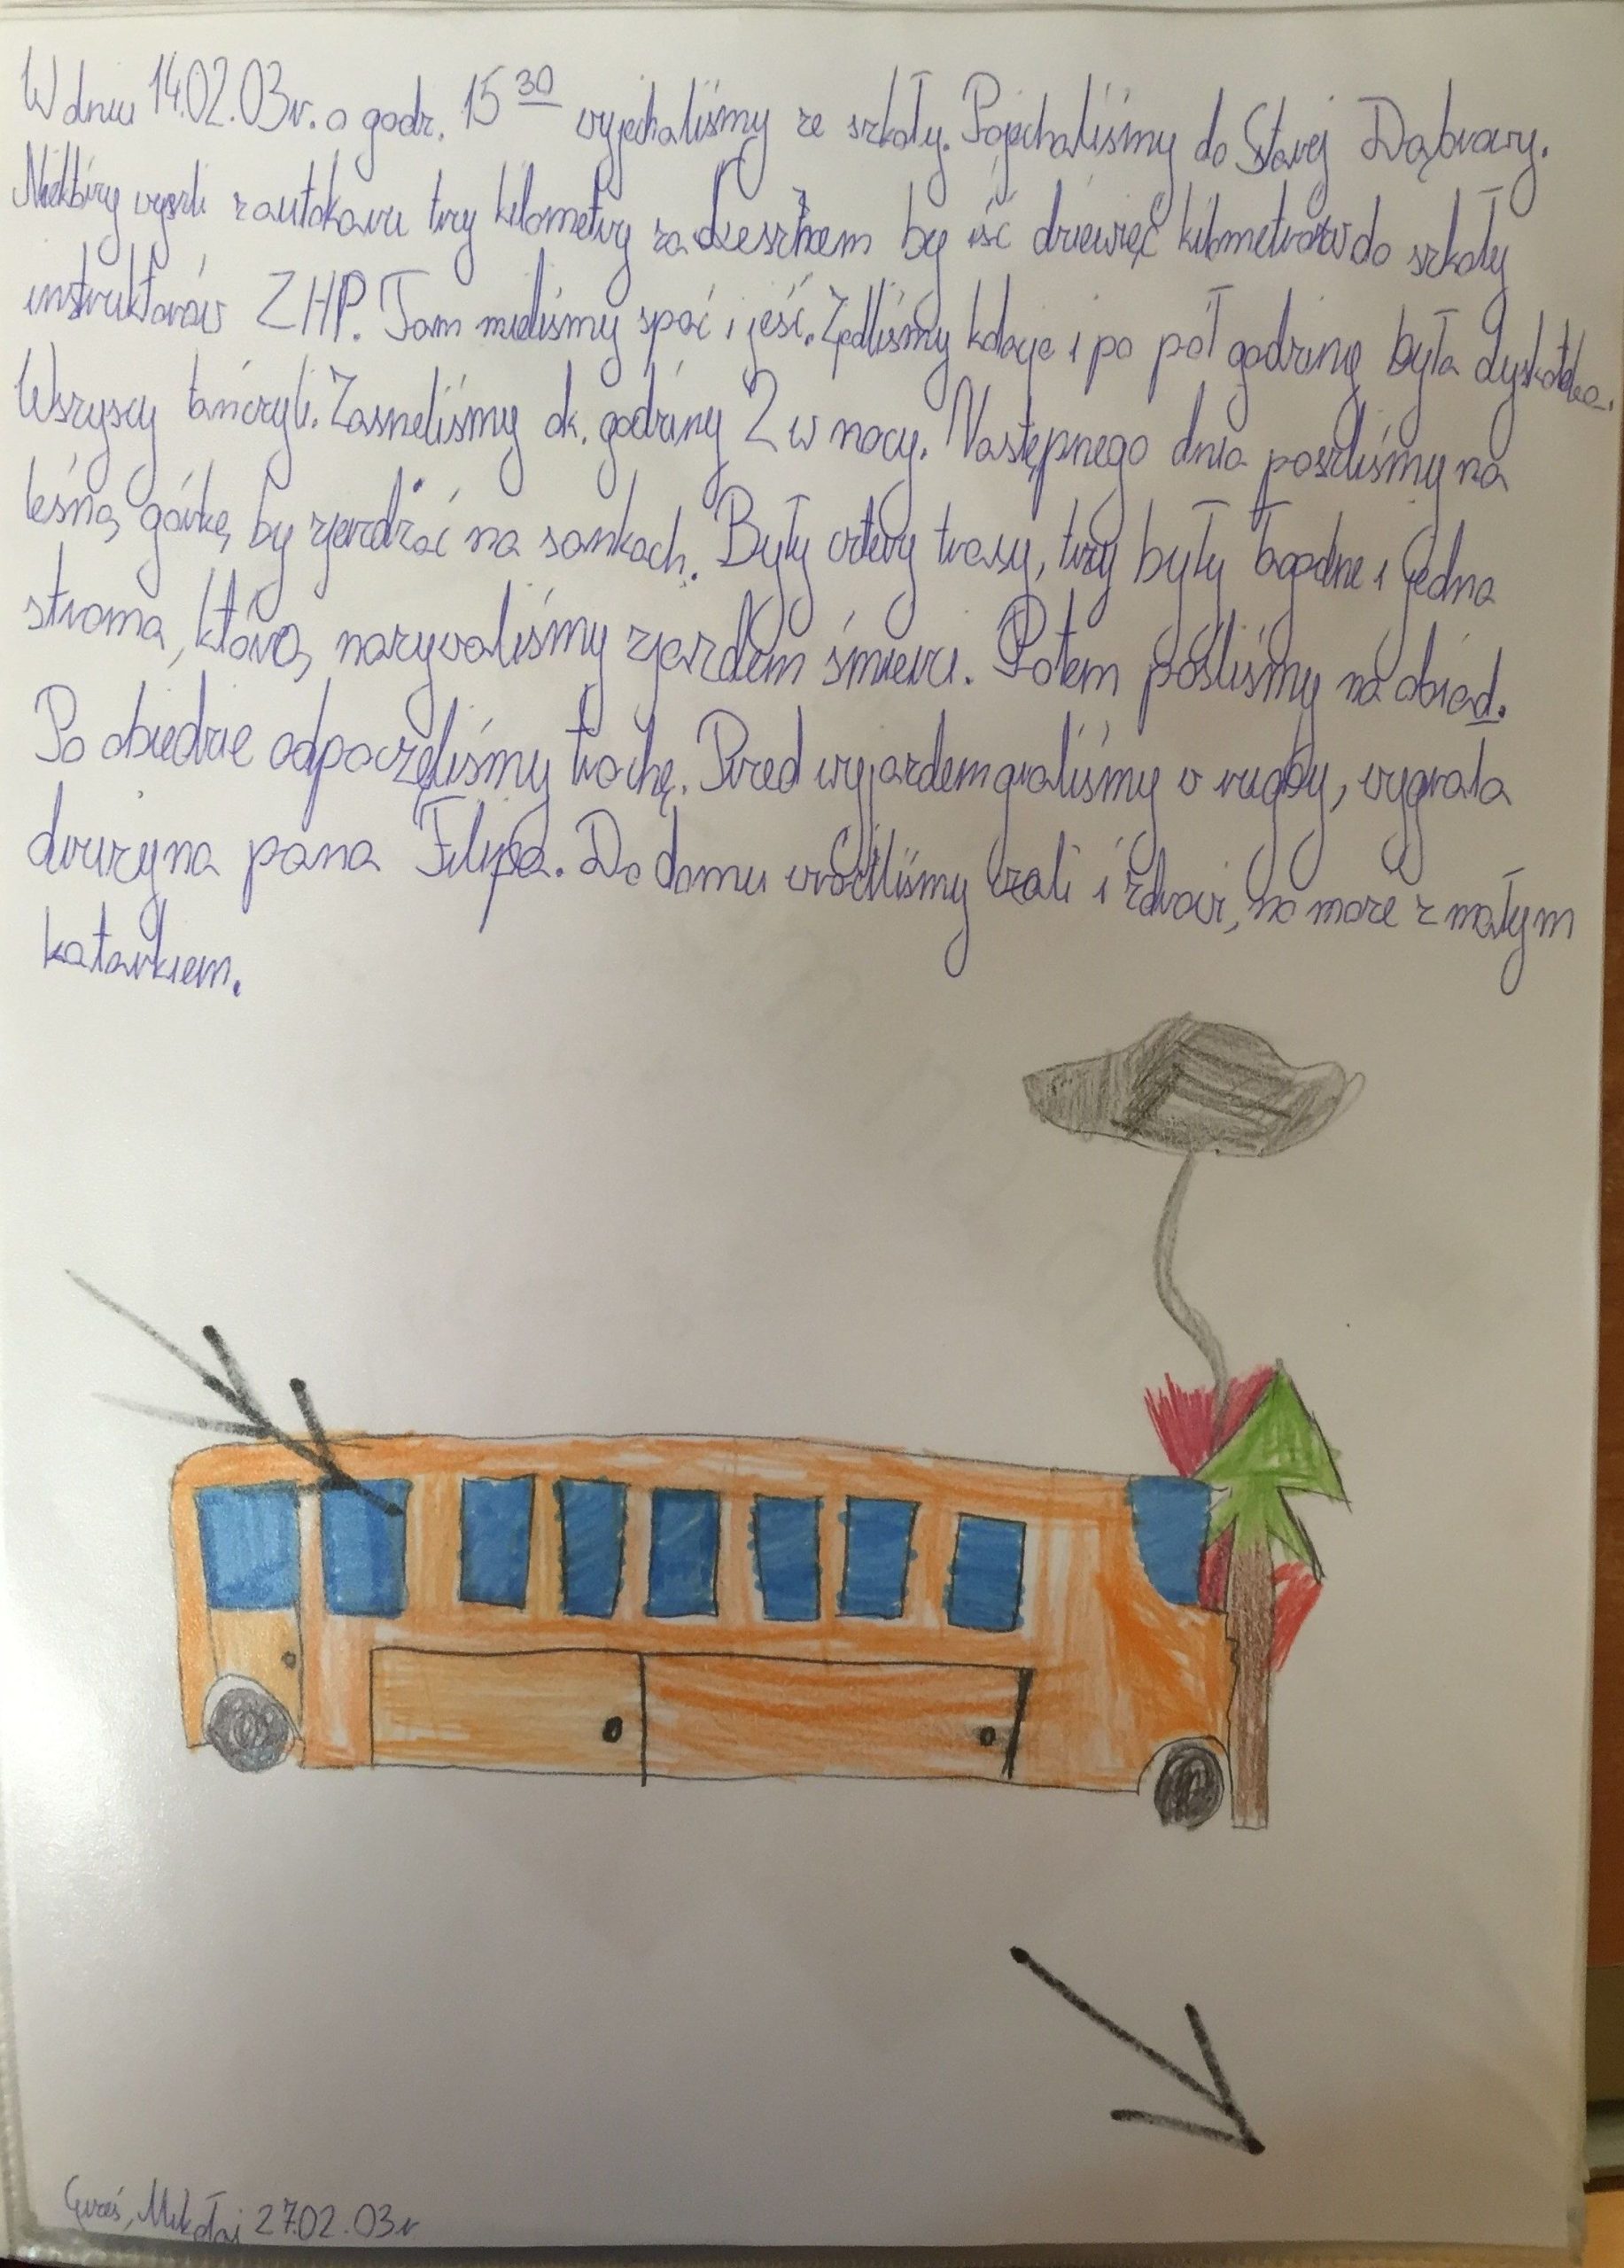 W dniu 14.02.03r. o godz. 15 30 wyjechaliśmy ze szkoły. Pojechaliśmy do Starej Dąbrowy.
Niektóry wyszli z autokaru trzy kilometry za by iść dziewięć kilometrów do szkoły
instruktorów ZHP. Tam mieliśmy spać i jeść. Zjedliśmy kolacje i po pół godziny była dyskoteka.
Wszyscy tańczyli. Zasneliśmy ok. godziny 2 w nocy. Następnego dnia poszliśmy na
leśną górkę by zjerdżać na sankach. Były cztery trasy, trzy były łagodne i jedna
stroma, którą nazywaliśmy zjazdem śmierci. Potem pośliśmy na obiad.
Po obiedzie odpoczęliśmy trochę. Przed wyjazdem graliśmy w rugby, wygrała
drużyna pana Filipa. Do domu wróciliśmy cali i zdrowi, no może z małym
katarkiem.
Mikołaj 27.02.03r